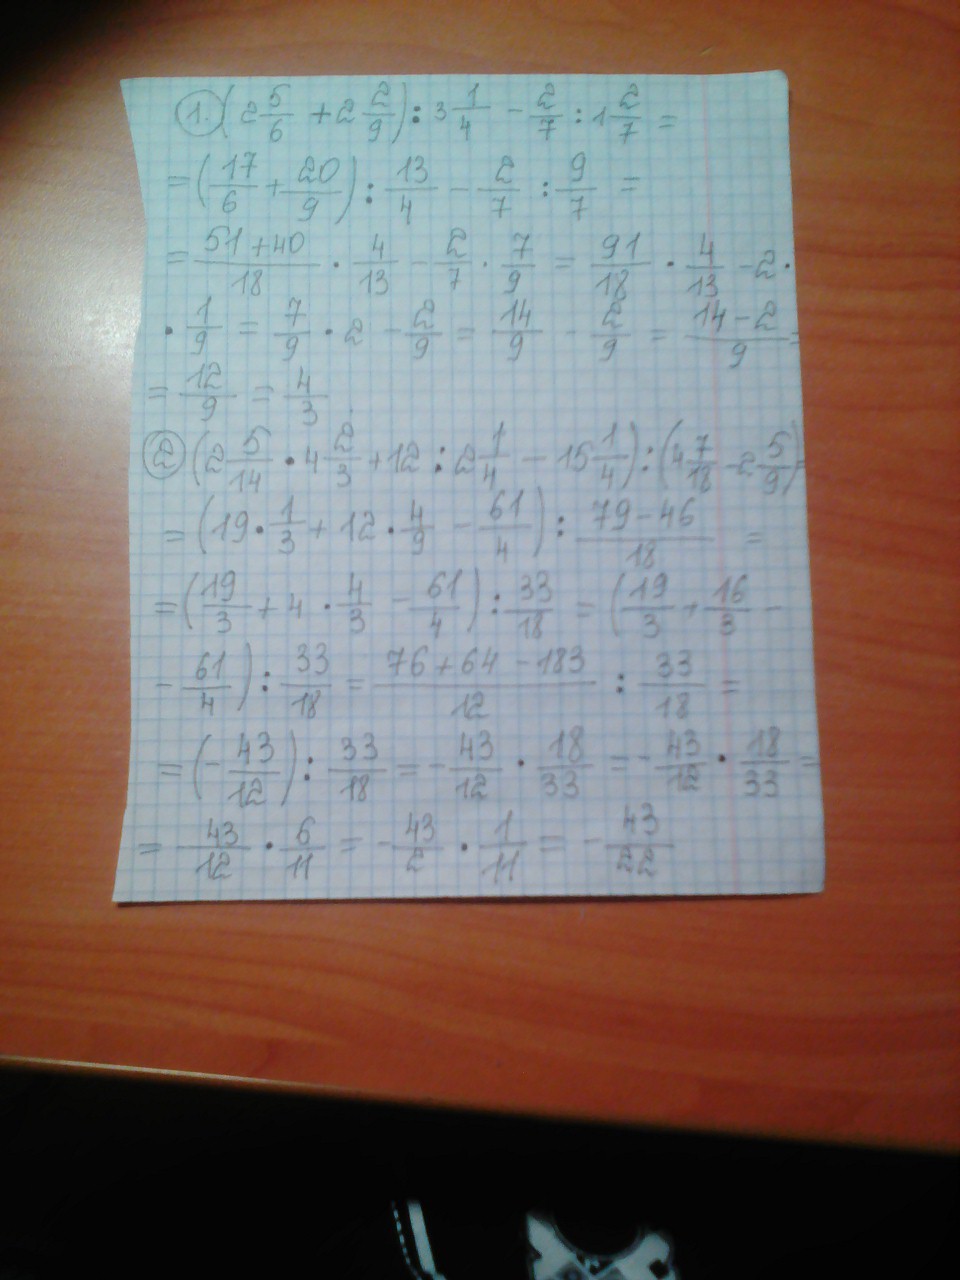 1. (2 5/6 + 2 2/9) : 3 1/4 - 2/7 : 1 2/7 =
= (17/6 + 20/9) : 13/4 - 2/7 : 9/7 =
= (51+40)/18 · 4/13 - 2/7 · 7/9 = 91/18 · 4/13 - 2 ·
· 1/9 = 7/9 · 2 - 2/9 = 14/9 - 2/9 = (14-2)/9 =
= 12/9 = 4/3
2 (2 5/14 · 4 2/3 + 12 : 2 1/4 - 15 1/4) : (4 7/18 - 2 5/9) =
= (19 · 1/3 + 12 · 4/9 - 61/4) : (79-46)/18 =
= (19/3 + 4 · 4/3 - 61/4) : 33/18 = (19/3 + 16/3 -
- 61/4) : 33/18 = (76+64-183)/12 : 33/18 =
= (- 43/12) : 33/18 = - 43/12 · 18/33 = - 43/12 · 18/33 =
= 43/12 · 6/11 = - 43/2 · 1/11 = - 43/22